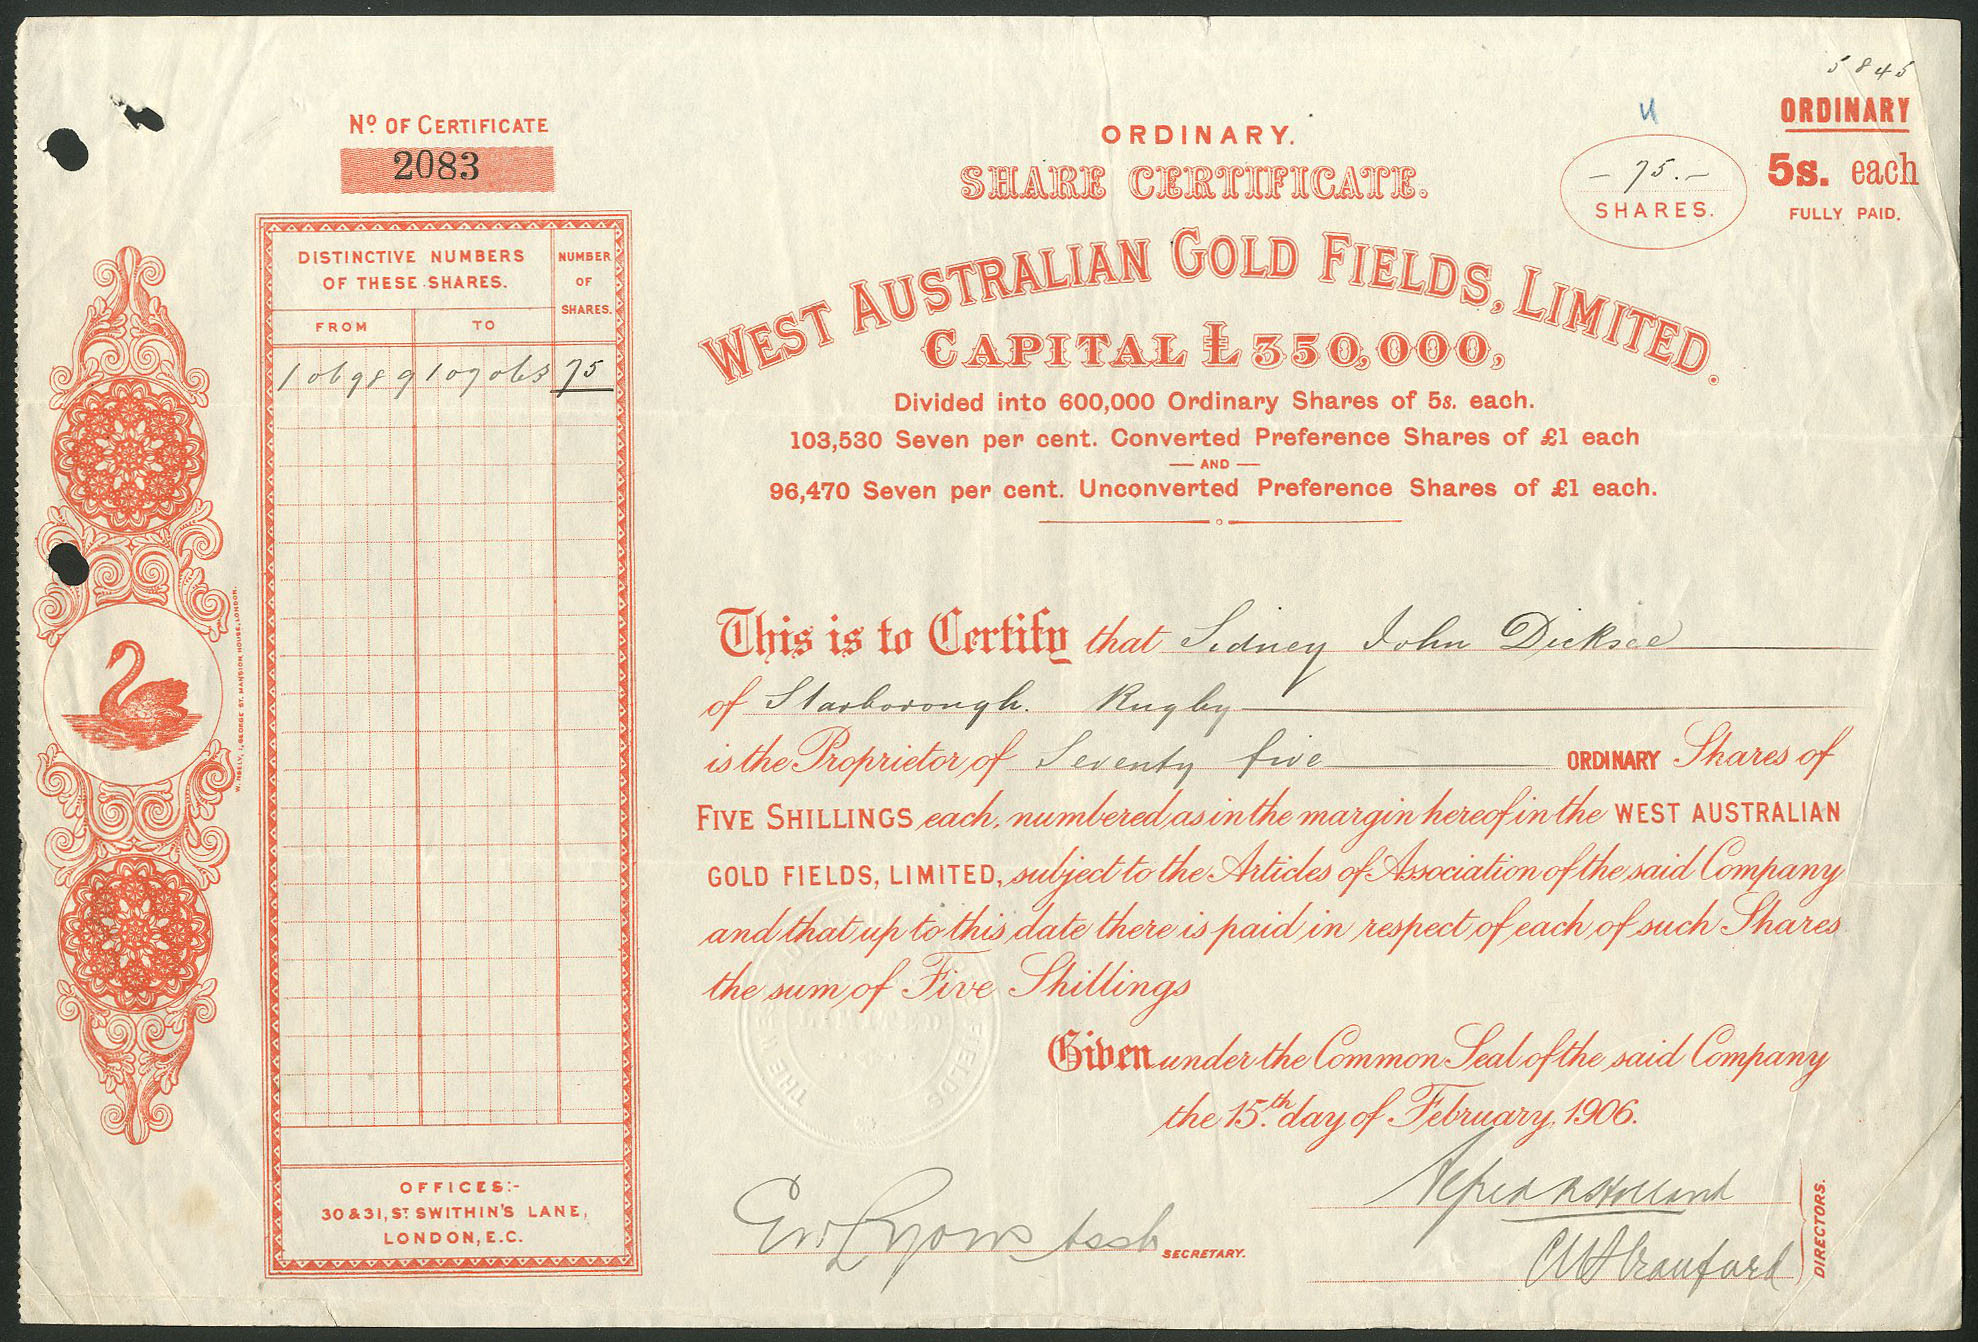 5845
Nº OF CERTIFICATE
2083
DISTINCTIVE NUMBERS
OF THESE SHARES.
NUMBER
OF
SHARES.
FROM TO
106989 107063 75
OFFICES:-
30 & 31, ST SWITHIN'S LANE,
LONDON, E.C.
ORDINARY.
SHARE CERTIFICATE.
- 75. -
SHARES.
ORDINARY
5s. each
FULLY PAID.
WEST AUSTRALIAN GOLD FIELDS, LIMITED.
CAPITAL £350,000,
Divided into 600,000 Ordinary Shares of 5s. each.
103,530 Seven per cent. Converted Preference Shares of £1 each
— AND —
96,470 Seven per cent. Unconverted Preference Shares of £1 each.
This is to Certify that Sidney John Dicksee
of Starborough. Rugby
is the Proprietor of Seventy five ORDINARY Shares of
FIVE SHILLINGS each, numbered as in the margin hereof in the WEST AUSTRALIAN
GOLD FIELDS, LIMITED, subject to the Articles of Association of the said Company
and that up to this date there is paid in respect of each of such Shares
the sum of Five Shillings
Given under the Common Seal of the said Company
the 15.th day of February, 1906.
SECRETARY.
DIRECTORS.